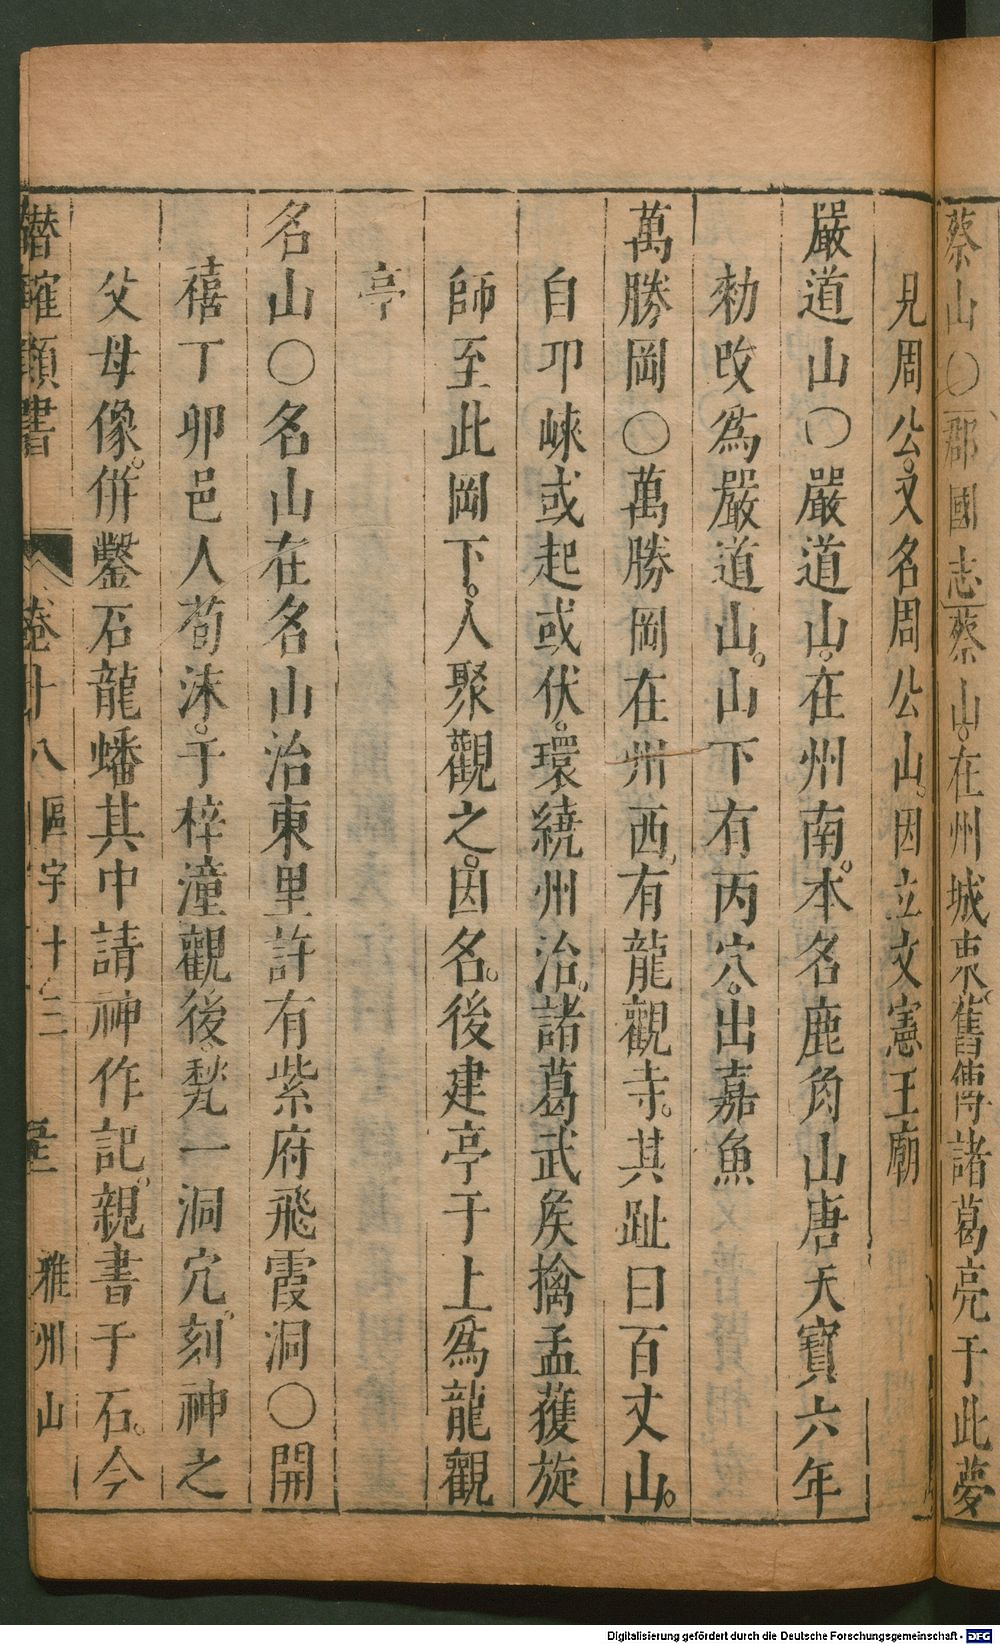 蔡山○郡國志蔡山在州城東舊傳諸葛亮于此夢
見周公又名周公山因立文憲王廟
嚴道山○嚴道山在州南本名鹿角山唐天寶六年
勑改爲嚴道山山下有丙穴出嘉魚
萬勝岡○萬勝岡在州西有龍觀寺其趾曰百丈山
自邛崍或起或伏環繞州治諸葛武矦擒孟獲旋
師至此岡下人聚觀之因名後建亭于上爲龍觀
亭
名山○名山在名山治東里許有紫府飛霞洞○開
禧丁卯邑人荀洡于梓潼觀後甃一洞穴刻神之
父母像併鑿石龍蟠其中請神作記親書于石今
潛確類書 卷十八 區宇十三 雅州山
Digitalisierung gefördert durch die Deutsche Forschungsgemeinschaft - DFG